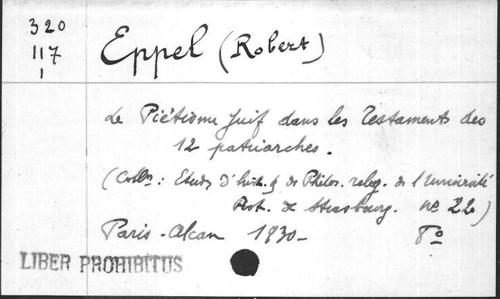 320
117
1
Eppel (Robert)
Le Piétisme Juif dans les Testaments des
12 patriarches.
(Collon: Etudes d'hist. & de Philos. relig. de l'Université
Prot. de Strasbourg. no 22)
Paris - Alcan 1930 - 8o
LIBER PROHIBITUS